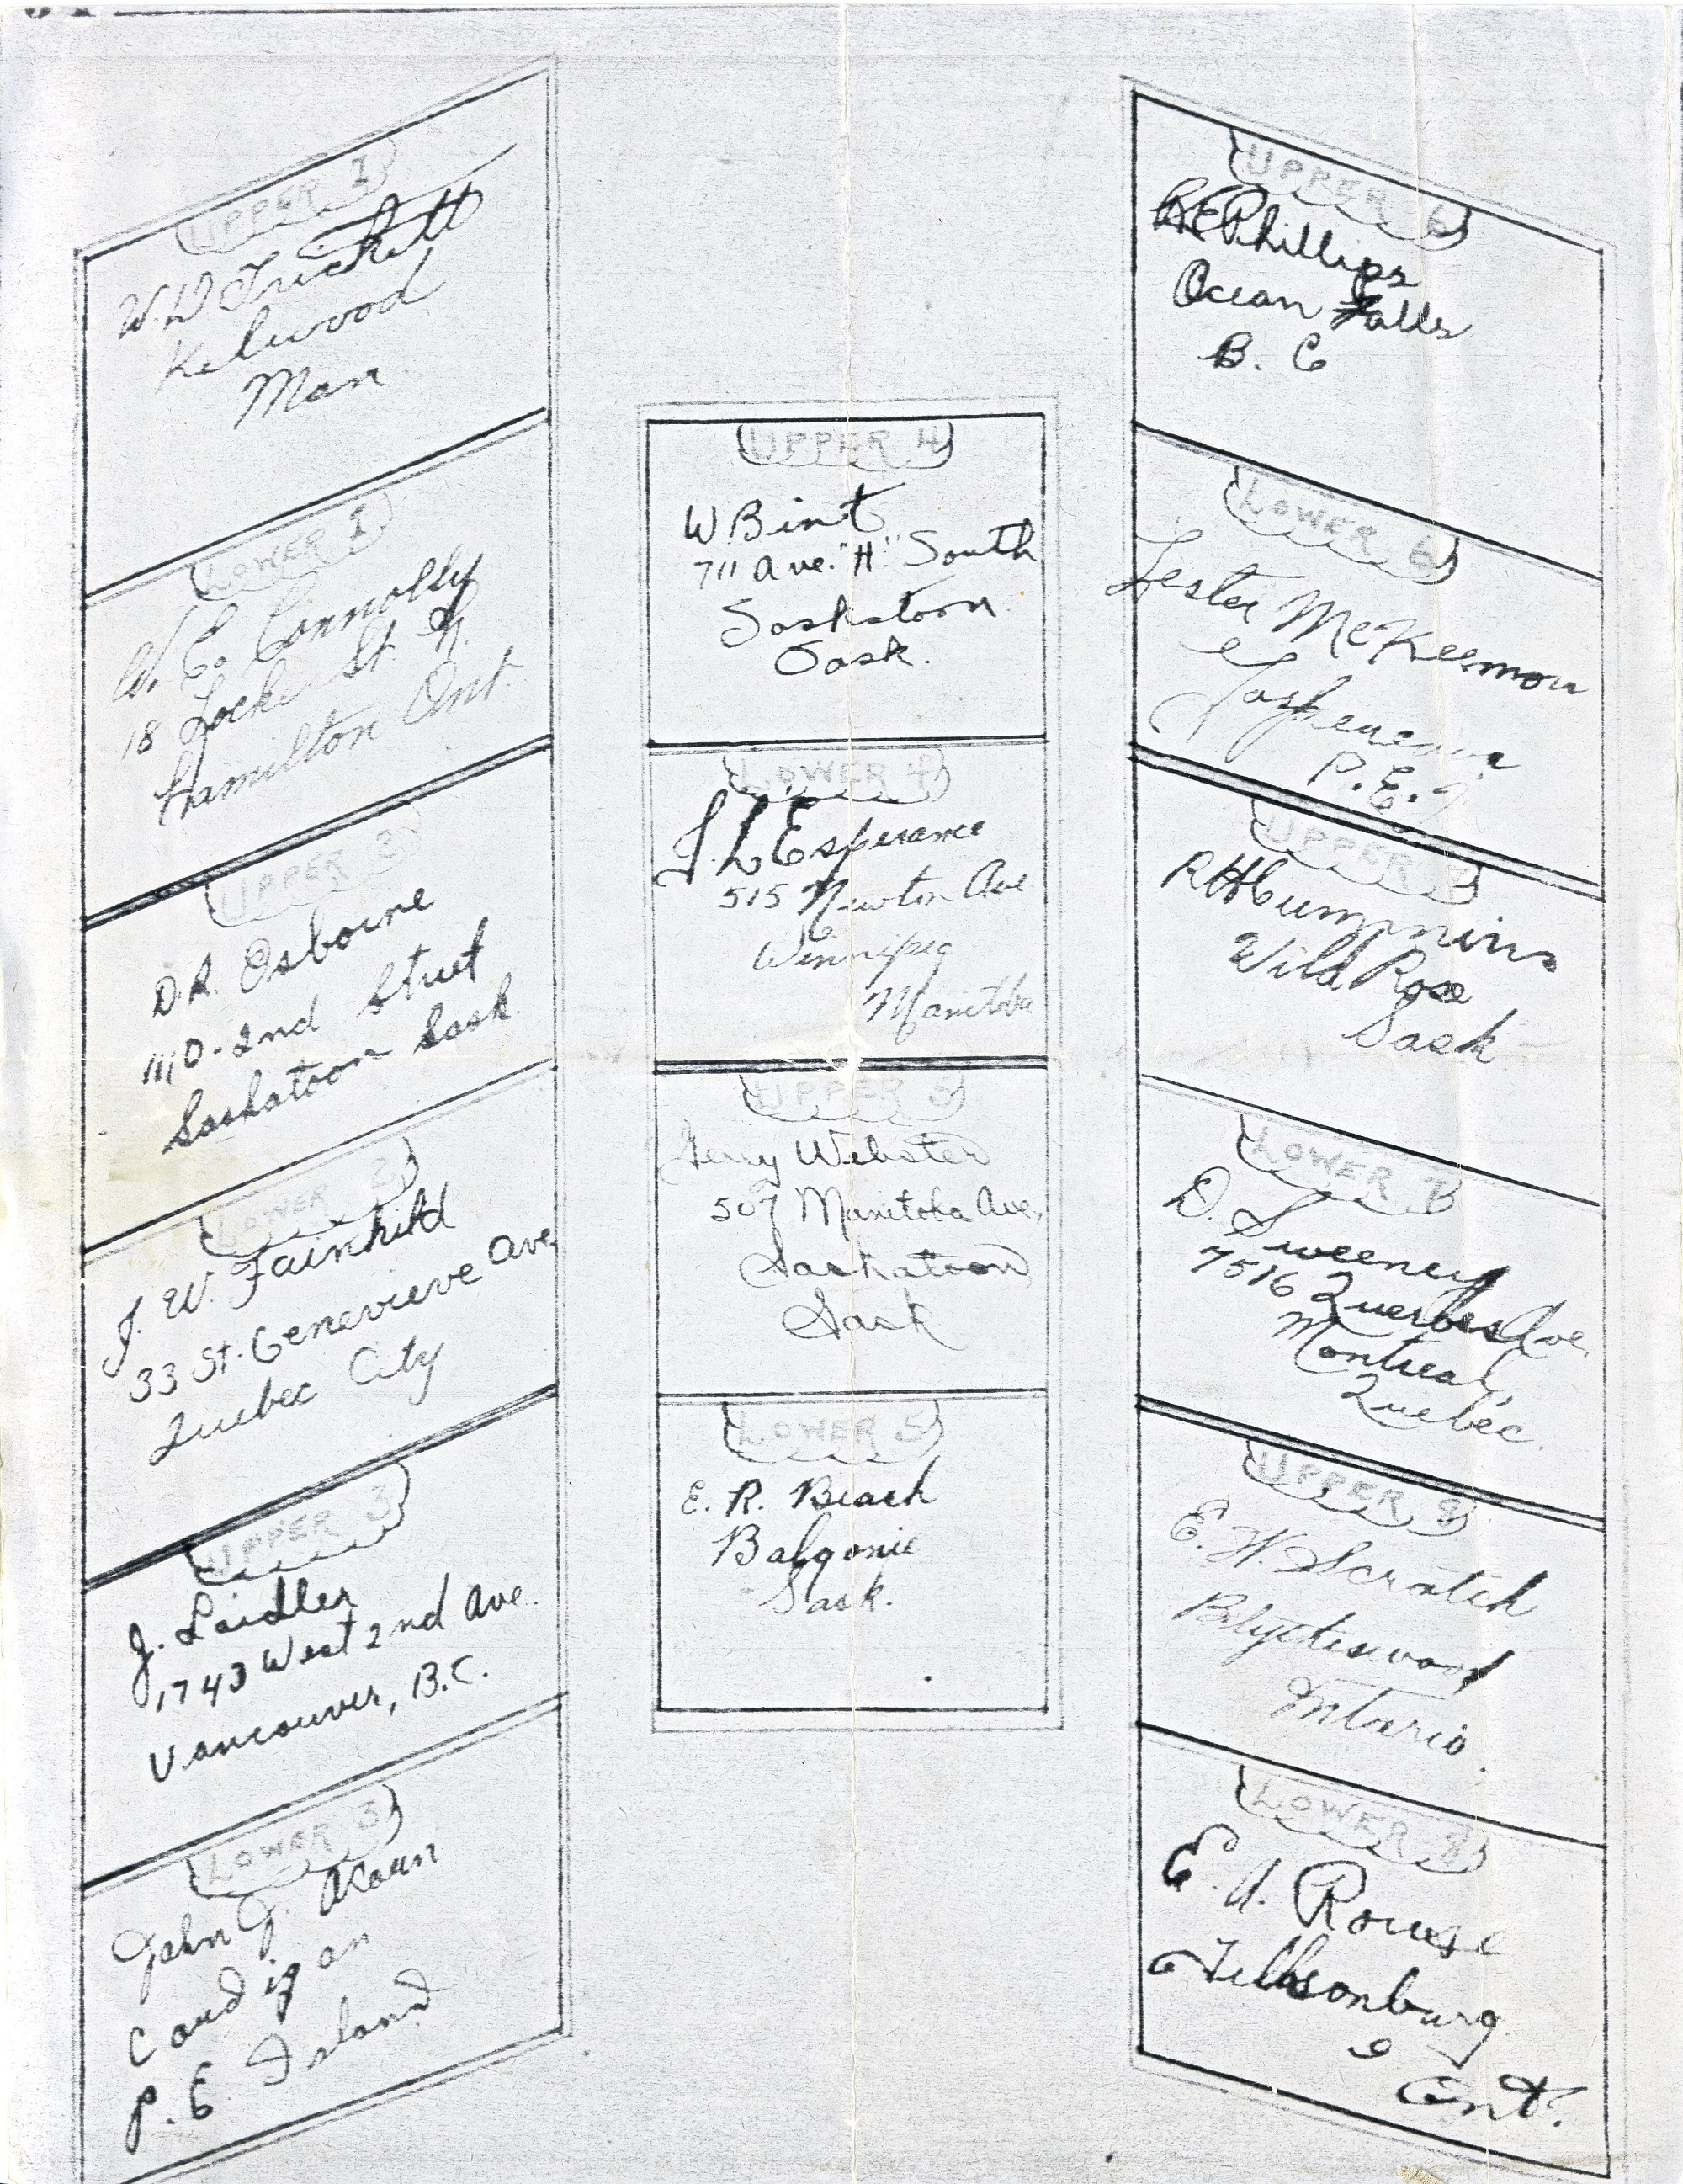 UPPER 1
W.D. Trickett
Kelwood
Man.
LOWER 1
W. E. Connolly
18 Locke St. N.
Hamilton Ont.
UPPER 2
D.A. Osborne
1110-2nd Street
Saskatoon Sask.
LOWER 2
J. W. Fairchild
33 St. Genevieve Ave
Quebec City
UPPER 3
J. Laidler
1743 West 2nd Ave.
Vancouver, B.C.
LOWER 3
John J. Acorn
Cardigan
P. E. Island
UPPER 4
W. Bint
711 Ave. "H." South
Saskatoon.
Sask.
LOWER 4
J. L'Esperance
515 Newton Ave
Winnipeg
Manitoba
UPPER 5
Gerry Webster
507 Manitoba Ave,
Saskatoon
Sask
LOWER 5
E. R. Beach
Balgonie
Sask.
UPPER 6
Phillips
Ocean Falls
B. C
LOWER 6
Lester McKeemon
P.E.I
UPPER 7
RH Cummins
Wild Rose
Sask
LOWER 7
D. Sweeney
7516 Querbes Ave,
Montreal,
Quebéc.
UPPER 8
E. W. Scratch
Blytheswood
Ontario.
LOWER 8
E. A. Rouse
Tillsonburg
Ont.